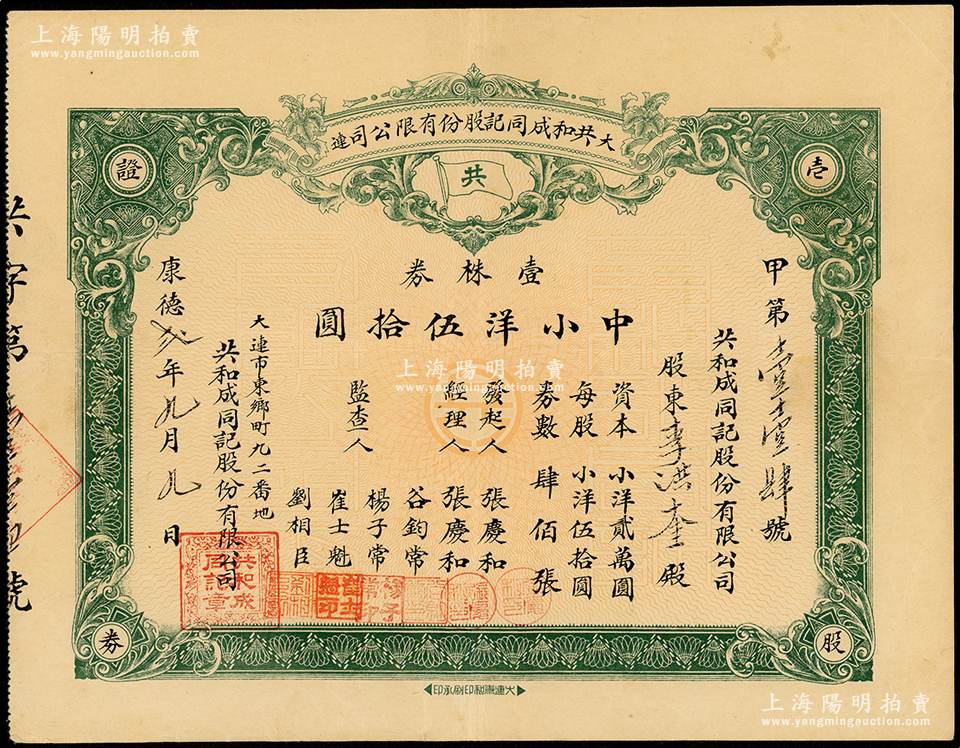 上海陽明拍賣
www.yangmingauction.com
大共和成同記股份有限公司連
共
壹
證
股
券
壹株券
中小洋伍拾圓
甲第壹壹肆號
共和成同記股份有限公司
股東李洪奎殿
資本 小洋貳萬圓
每股 小洋伍拾圓
券數 肆佰張
發起人 張慶和
經理人 張慶和
谷鈞常
監查人 楊子常
崔士魁
劉相臣
大連市東鄉町九二番地
共和成同記股份有限公司
康德貳年九月九日
共和成同記章
共字第
號
上海陽明拍賣
www.yangmingauction.com
上海陽明拍賣
www.yangmingauction.com